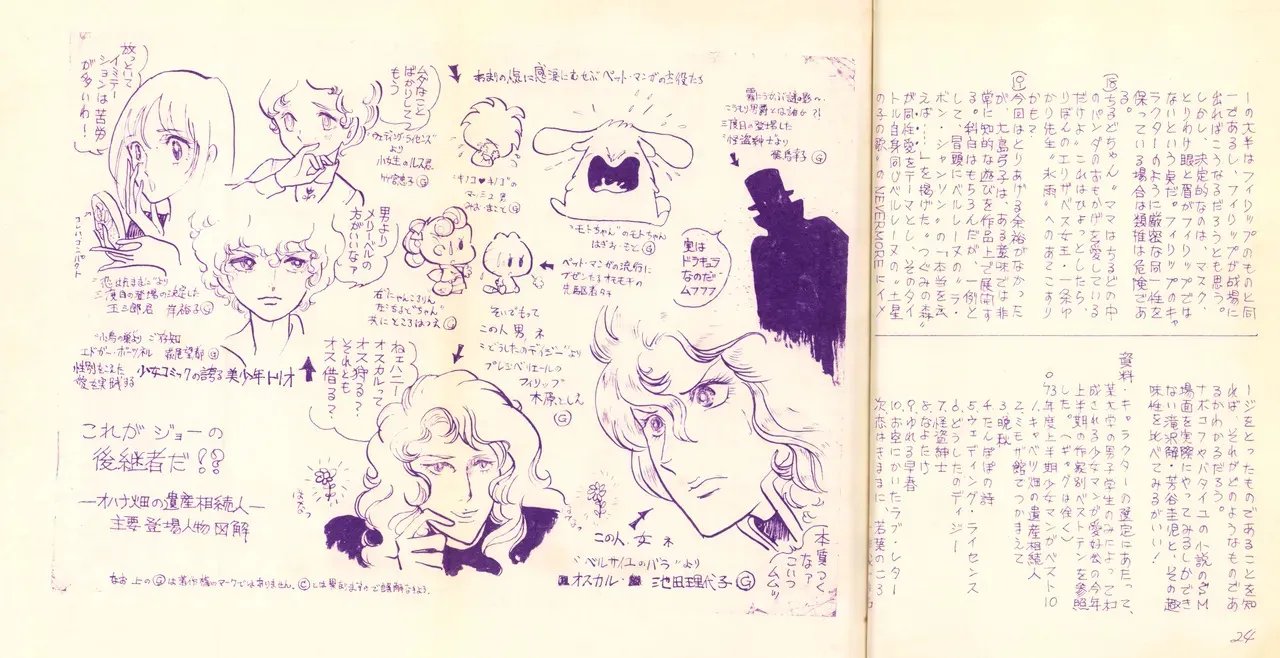 放っといて
イミテー
ションは苦労
が多いわ！
コンパクト
ムダなこと
ばかりして
もう
"ウェディング・ライセンス"
より
小女生のルス君
竹宮恵子 Ⓖ
あまりの点に感涙にむせぶペット・マンガの主役たち
"キノコ♥キノコ"の
マッシュ君
みおまこと Ⓖ
"モトちゃん"のモトちゃん
はぎお・もと Ⓖ
霧にうかぶ謎の影へ
こうもり男爵とは誰か？！
三度目の登場した
"怪盗紳士"より
Ⓖ
実は
ドラキュラ
なのだ
ムフフフ
男より
メリーベルの
方がいいなァ
"恋はきままに"より
三度目の登場の決定した
玉三郎君
Ⓖ
"小鳥の巣より"ご存知
エドガー・ポーツネル 萩尾望都 Ⓖ
性別をこえた
愛を実践する
少女コミックの誇る美少年トリオ
右"にゃんころりん"
左"ちるどちゃん"
共にところはつえ Ⓖ
ペット・マンガの流行に
先駆者タチ
そいでもって
この人、男、ネ
"どうしたのデイジー"より
プレジベリエールの
フィリップ
木原としえ
Ⓖ
ねェハニー
オスカルって
オス狩る？
それとも
オス借る？
これがジョーの
後継者だ！？
―オハナ畑の遺産相続人―
主要登場人物図解
なお上のⒼは著作権のマークではありません。Ⓒとは異なりますので誤解なきよう。
この人、女、ネ
"ベルサイユのバラ"より
オスカル・ 池田理代子 Ⓖ
本質つく
なァ
こいつ
ムムッ
ーの大半はフィリップのものと同
一であるし、フィリップが戦場に
出ればこうなるだろうとも思う。
しかし、決定的なのは、マスク、
とりわけ眼と眉がフィリップでは
ないという一点だ。フィリップのキャ
ラクターのように厳密な同一性を
保っている場合は類推は危険であ
る。
⑱ちるどちゃん。ママはちるどちゃん
のパンダのおもかげを愛している
だけよ。これはひょっとしたら、
りぼんのエリザベス女王・一条ゆ
かり先生"氷雨"へのあてこすり
かもネ。
⑲今回はとりあげる余裕がなかった
が、大島弓子は、ある意味では非
常に知的な遊びを作品上で展開す
る。科白はもちろんだが、一例と
して、冒頭にベルレーヌの"ラ・
ボン・シャンソン"の"本当を云
えば……"を掲げた。"つぐみの森"
が同性愛をテーマとし、そのタイ
トル自身同じベルレーヌの"土星
の子の歌"のNEVERMOREにイメ
ージをとったものであることを知
れば、それがどのようなものであ
るかわかるだろう。
ナボコフやバタイユの小説のSM
場面を実際にやってみるしかでき
ない滝沢解・芳谷圭児と、その趣
味性を比べてみるがいい！
資料・キャラクターの選定にあたって、
某大学の男子学生のみによって構
成される少女マンガ愛好会の今年
上半期の作家別ベストテンを参照
した。（ギャグは除く）
○73年度上半期少女マンガベスト10
1.キャベツ畑の遺産相続人
2.ミモザ館でつかまえて
3.晩秋
4.たんぽぽの詩
5.ウェディング・ライセンス
6.どうしたのデイジー
7.怪盗紳士
8.なよたけ
9.ゆれる早春
10.お空にかいたラブ・レター
次点 恋はきままに 若葉のころ
24